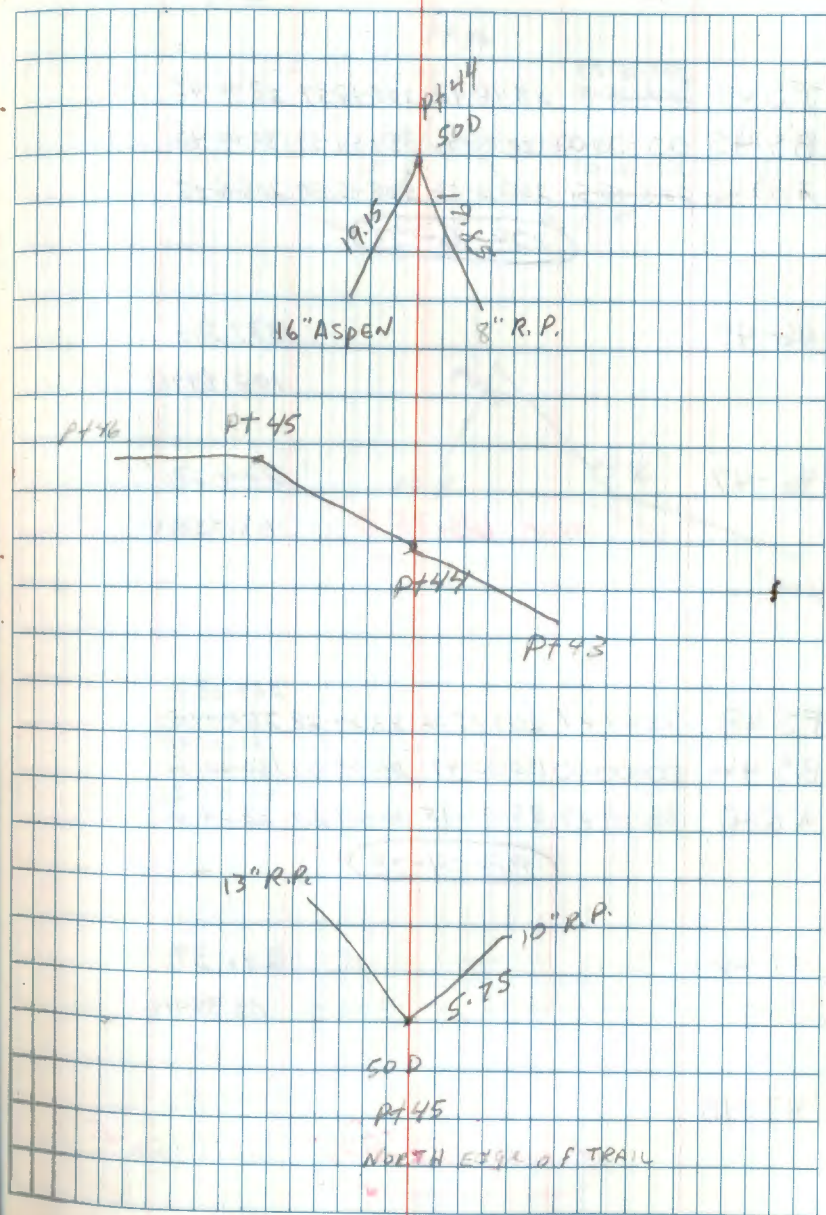 Pt 44
50D
19.15
16" ASPEN
8" R.P.
Pt 46
Pt 45
Pt 44
Pt 43
13" R.P.
10" R.P.
5.75
50D
Pt 45
NORTH Edge of TRAIL